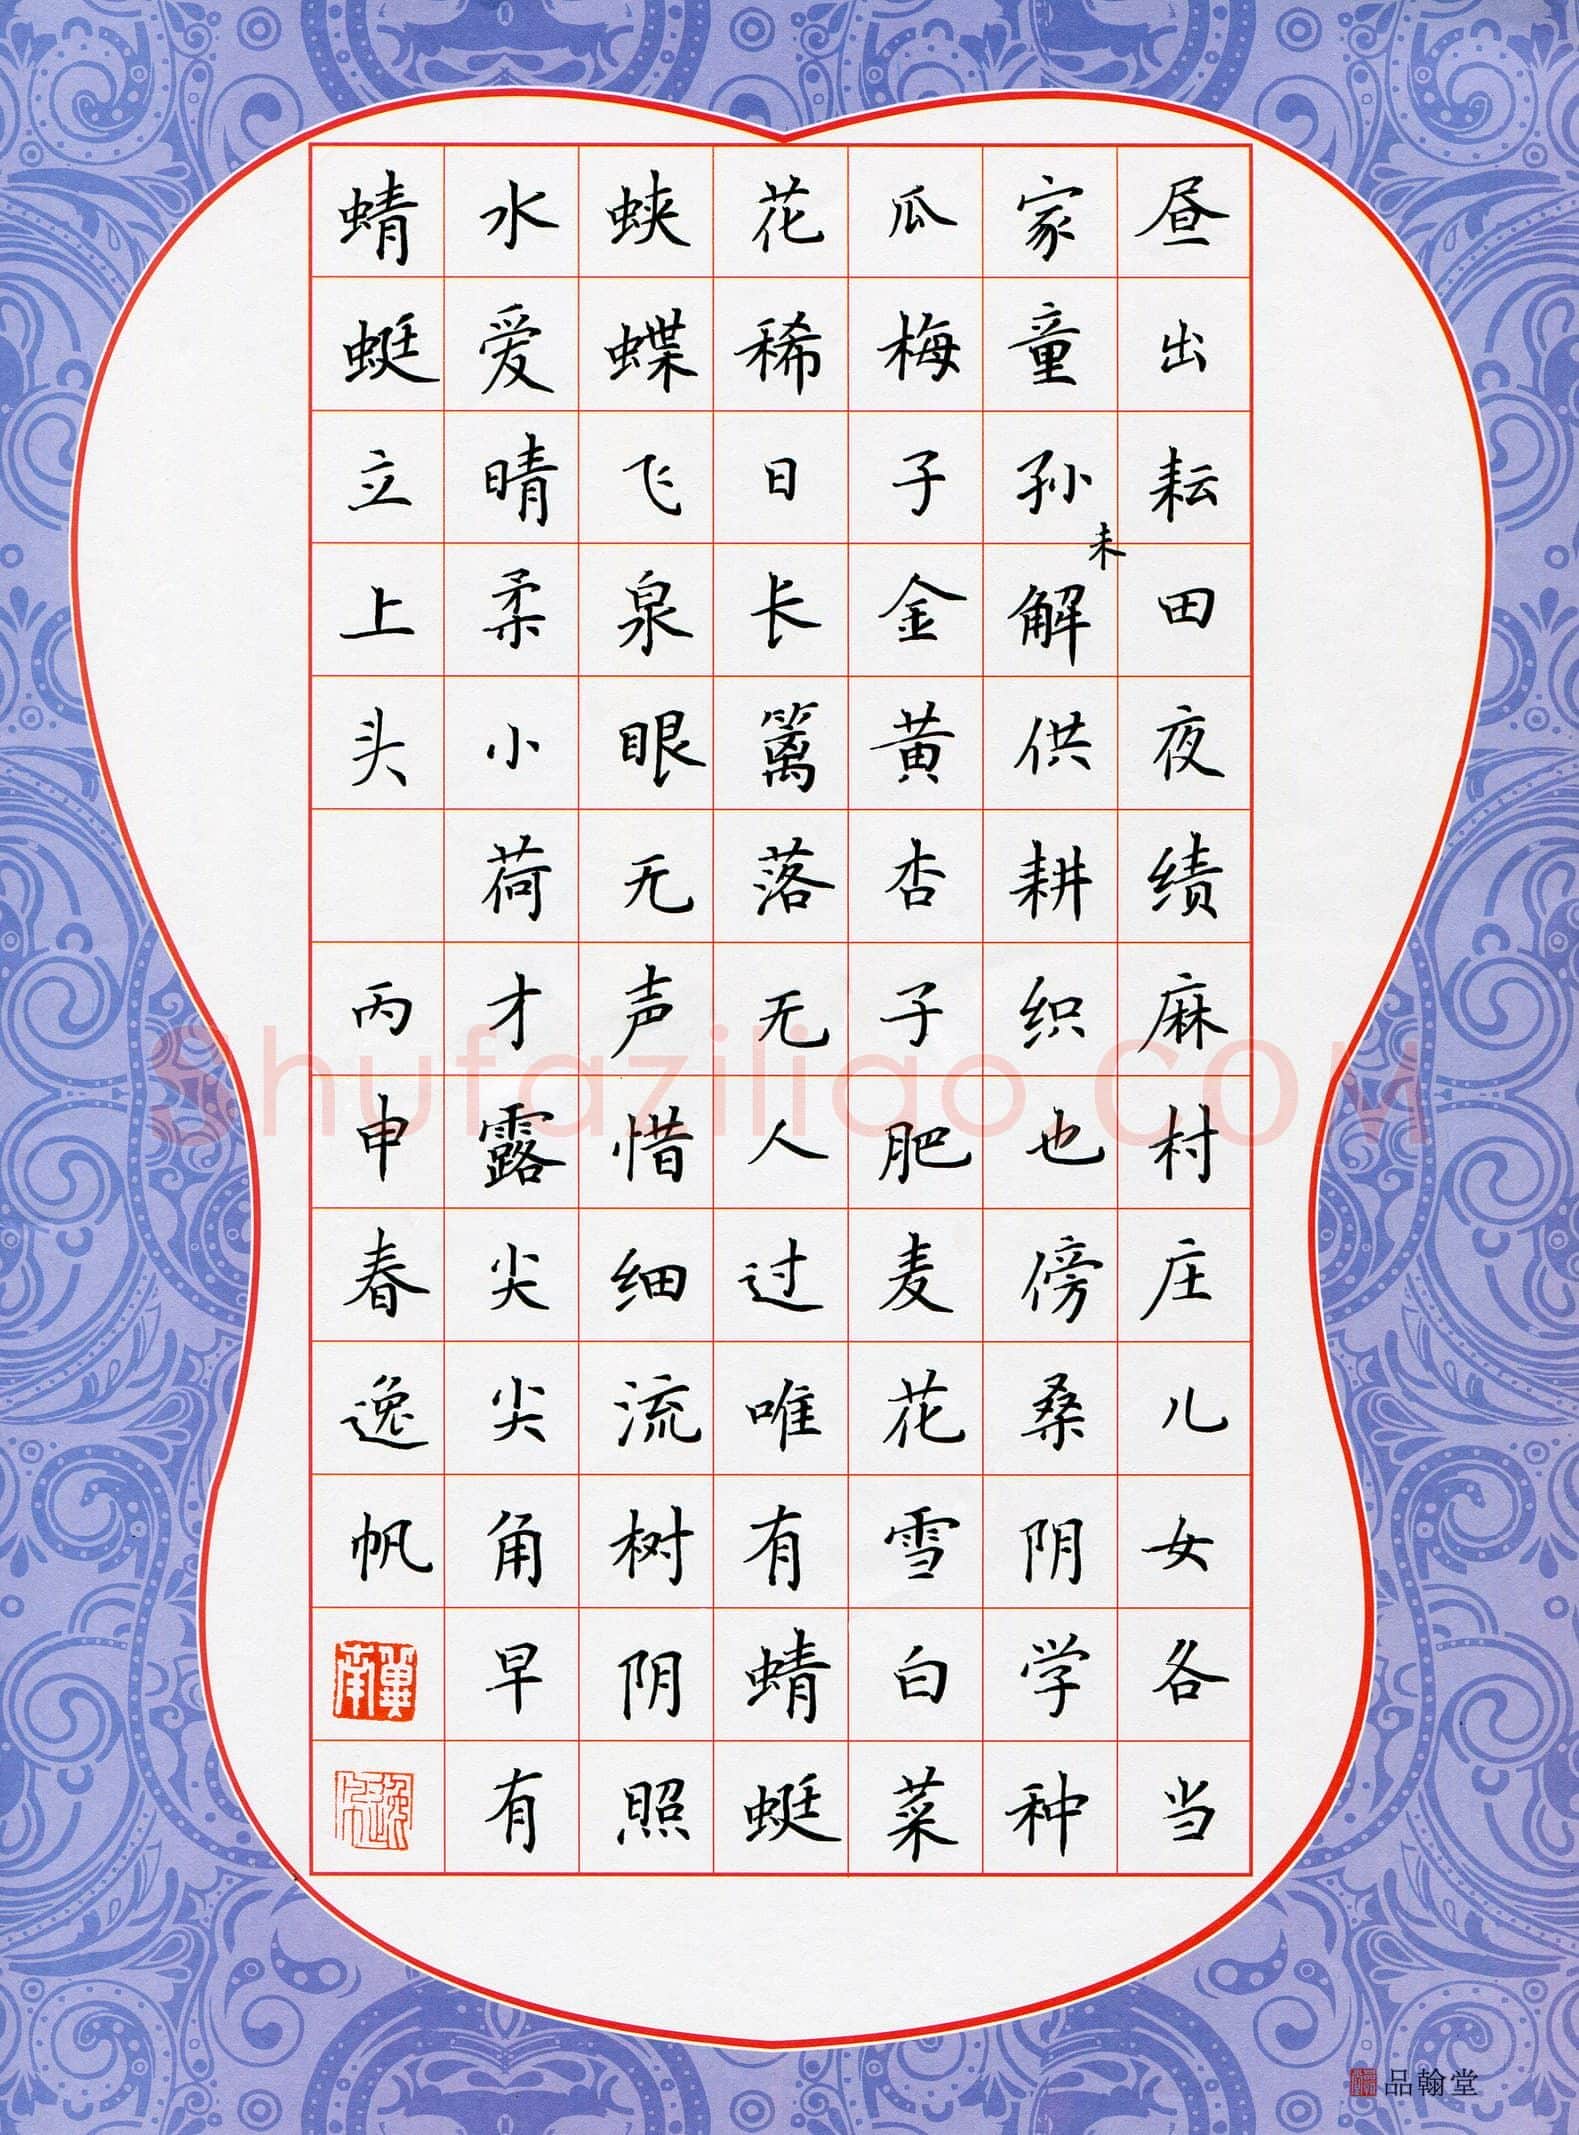 昼出耘田夜绩麻村庄儿女各当
家童孙未解供耕织也傍桑阴学种
瓜梅子金黄杏子肥麦花雪白菜
花稀日长篱落无人过唯有蜻蜓
蛱蝶飞泉眼无声惜细流树阴照
水爱晴柔小荷才露尖尖角早有
蜻蜓立上头 丙申春逸帆
冀南
Shufaziliao.COM
品翰堂